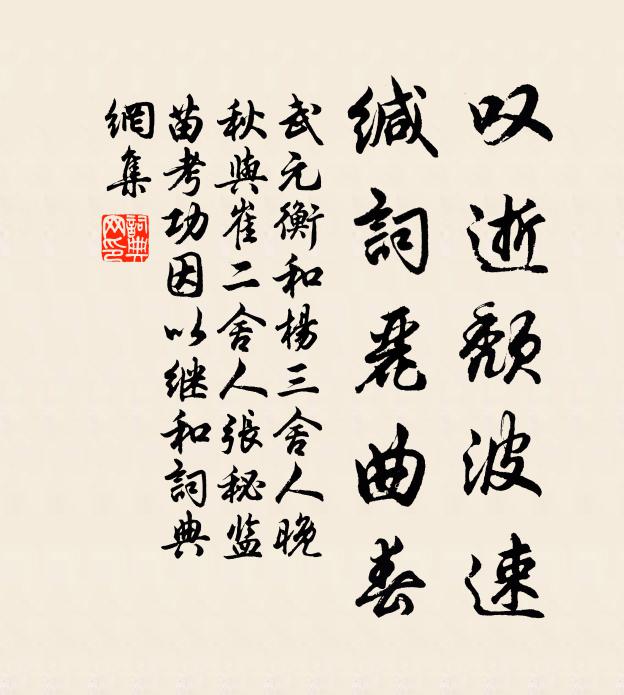 叹逝颓波速
缄词丽曲春
武元衡和杨三舍人晚
秋与崔二舍人张秘监
苗考功因以继和词典
網集
詞典網印